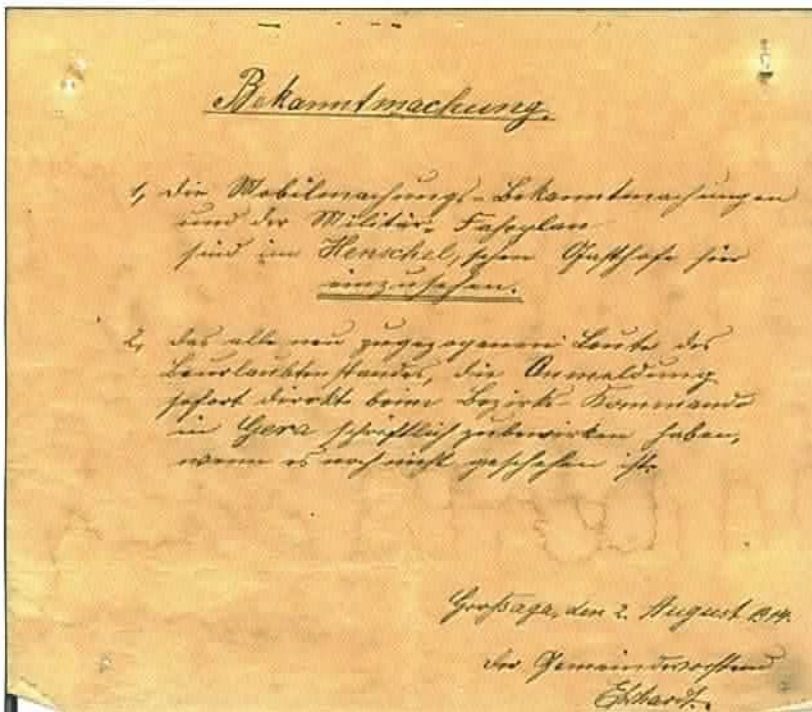 Bekanntmachung.
1, die Mobilmachungs-Bekanntmachungen
und der Militär-Fahrplan
sind im Henschel'schen Gasthofe hier
einzusehen.
2, das alle neu zugezogenen Leute des
Beurlaubtenstandes, die Anmeldung
sofort direkte beim Bezirks-Kommando
in Gera schriftlich zubewirken haben,
wenn es noch nicht geschehen ist.
Großaga, den 2. August 1914.
der Gemeindevorstand